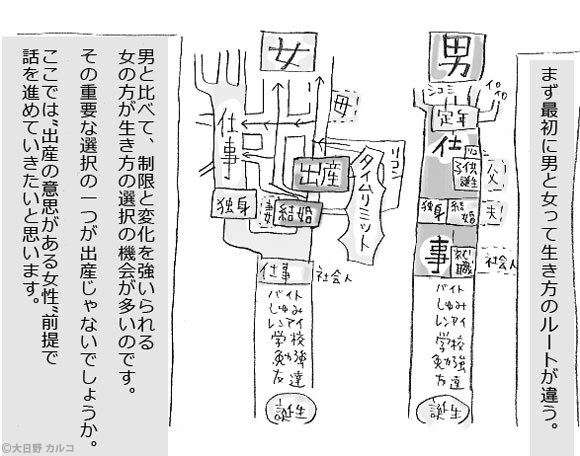 まず最初に男と女って生き方のルートが違う。
男
シコシコ
イロイロ
定年
仕
子供誕生
父
独身
結婚
夫
事
就職
社会人
バイト
しゅみ
レンアイ
学校
勉強
友達
誕生
女
母
仕事
リコン
出産
タイムリミット
独身
妻
結婚
仕事
社会人
バイト
しゅみ
レンアイ
学校
勉強
友達
誕生
男と比べて、制限と変化を強いられる
女の方が生き方の選択の機会が多いのです。
その重要な選択の一つが出産じゃないでしょうか。
ここでは“出産の意思がある女性”前提で
話を進めていきたいと思います。
©大日野 カルコ